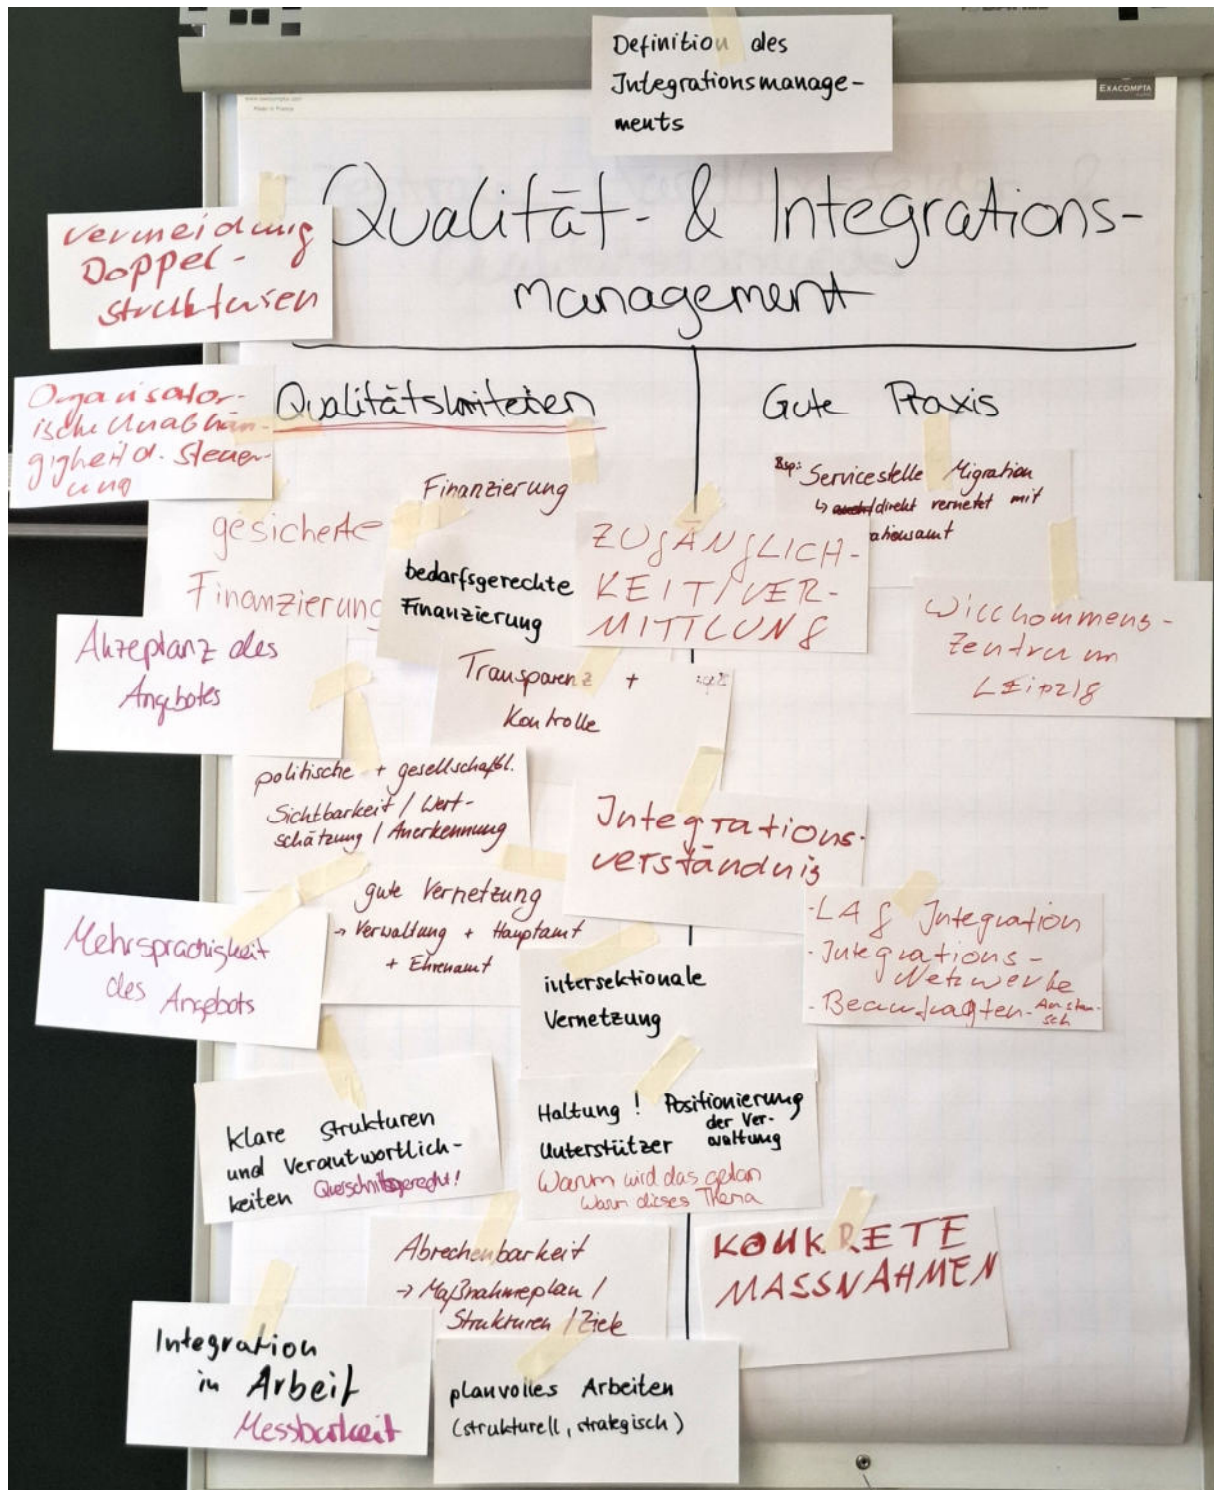 Definition des
Integrationsmanage-
ments
EXACOMPTA
Qualität- & Integrations-
management
Vermeidung
Doppel-
strukturen
Qualitätskriterien
Gute Praxis
Organisator-
ische Unabhän-
gigkeit d. Steuer-
ung
Finanzierung
gesicherte
Finanzierung
bedarfsgerechte
Finanzierung
ZUGÄNGLICH-
KEIT/VER-
MITTLUNG
Bsp: Servicestelle Migration
↳ direkt vernetzt mit
ationsamt
Willkommens-
zentrum
LEipzig
Akzeptanz des
Angebotes
Transparenz +
Kontrolle
politische + gesellschaftl.
Sichtbarkeit / Wert-
schätzung / Anerkennung
Integrations-
verständnis
gute Vernetzung
→ Verwaltung + Hauptamt
+ Ehrenamt
-LAG Integration
-Integrations-
Netzwerke
-Beauftragten-Austau-
sch
Mehrsprachigkeit
des Angebots
intersektionale
Vernetzung
klare Strukturen
und Verantwortlich-
keiten Querschnittsgerecht!
Haltung! Positionierung
der Ver-
waltung
Unterstützer
Warum wird das getan
Warum dieses Thema
Abrechenbarkeit
→ Maßnahmeplan /
Strukturen / Ziele
KONKRETE
MASSNAHMEN
Integration
in Arbeit
Messbarkeit
planvolles Arbeiten
(strukturell, strategisch)